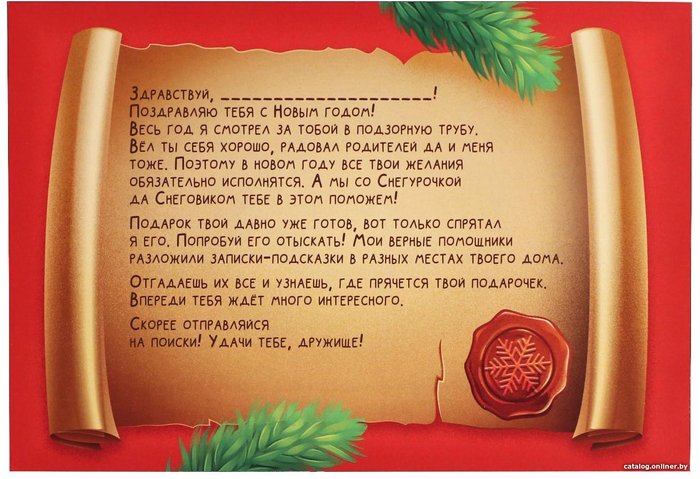 Здравствуй, _______________________!
Поздравляю тебя с Новым годом!
Весь год я смотрел за тобой в подзорную трубу.
Вёл ты себя хорошо, радовал родителей да и меня
тоже. Поэтому в новом году все твои желания
обязательно исполнятся. А мы со Снегурочкой
да Снеговиком тебе в этом поможем!
Подарок твой давно уже готов, вот только спрятал
я его. Попробуй его отыскать! Мои верные помощники
разложили записки-подсказки в разных местах твоего дома.
Отгадаешь их все и узнаешь, где прячется твой подарочек.
Впереди тебя ждёт много интересного.
Скорее отправляйся
на поиски! Удачи тебе, дружище!
catalog.onliner.by